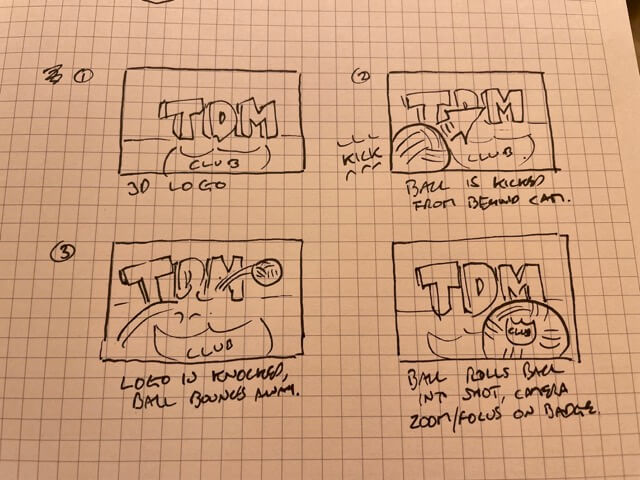 ①
TDM
CLUB
3D LOGO
②
TDM
KICK
CLUB
BALL IS KICKED
FROM BEHIND CAM.
③
TDM
CLUB
LOGO IS KNOCKED,
BALL BOUNCES AWAY.
TDM
CLUB
BALL ROLLS BALL
INT SHOT, CAMERA
ZOOM/FOCUS ON BADGE.